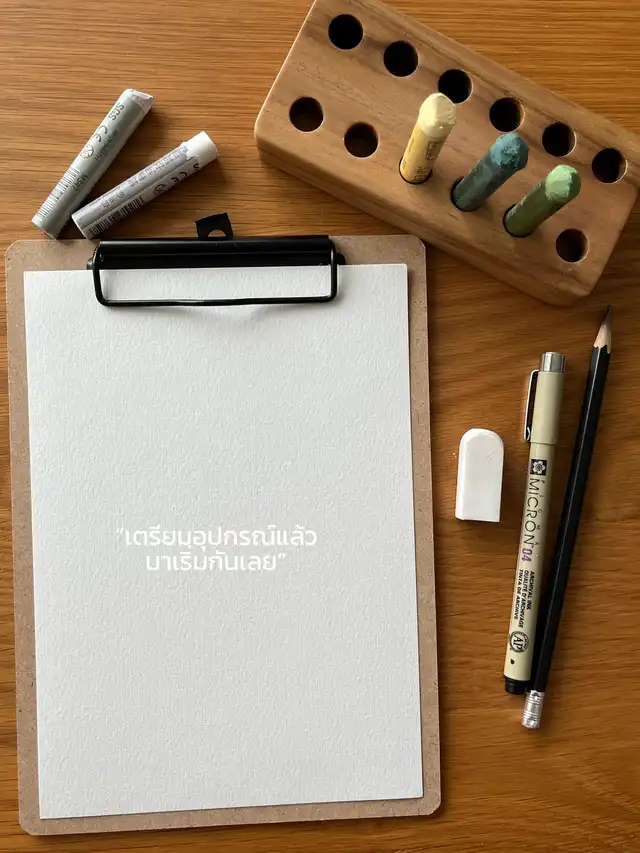 "เตรียมอุปกรณ์แล้ว
มาเริ่มกันเลย"
MICRON 04
ARCHIVAL INK
QUALITÉ D'ARCHIVAGE
TINTA DE ARCHIVO
AP